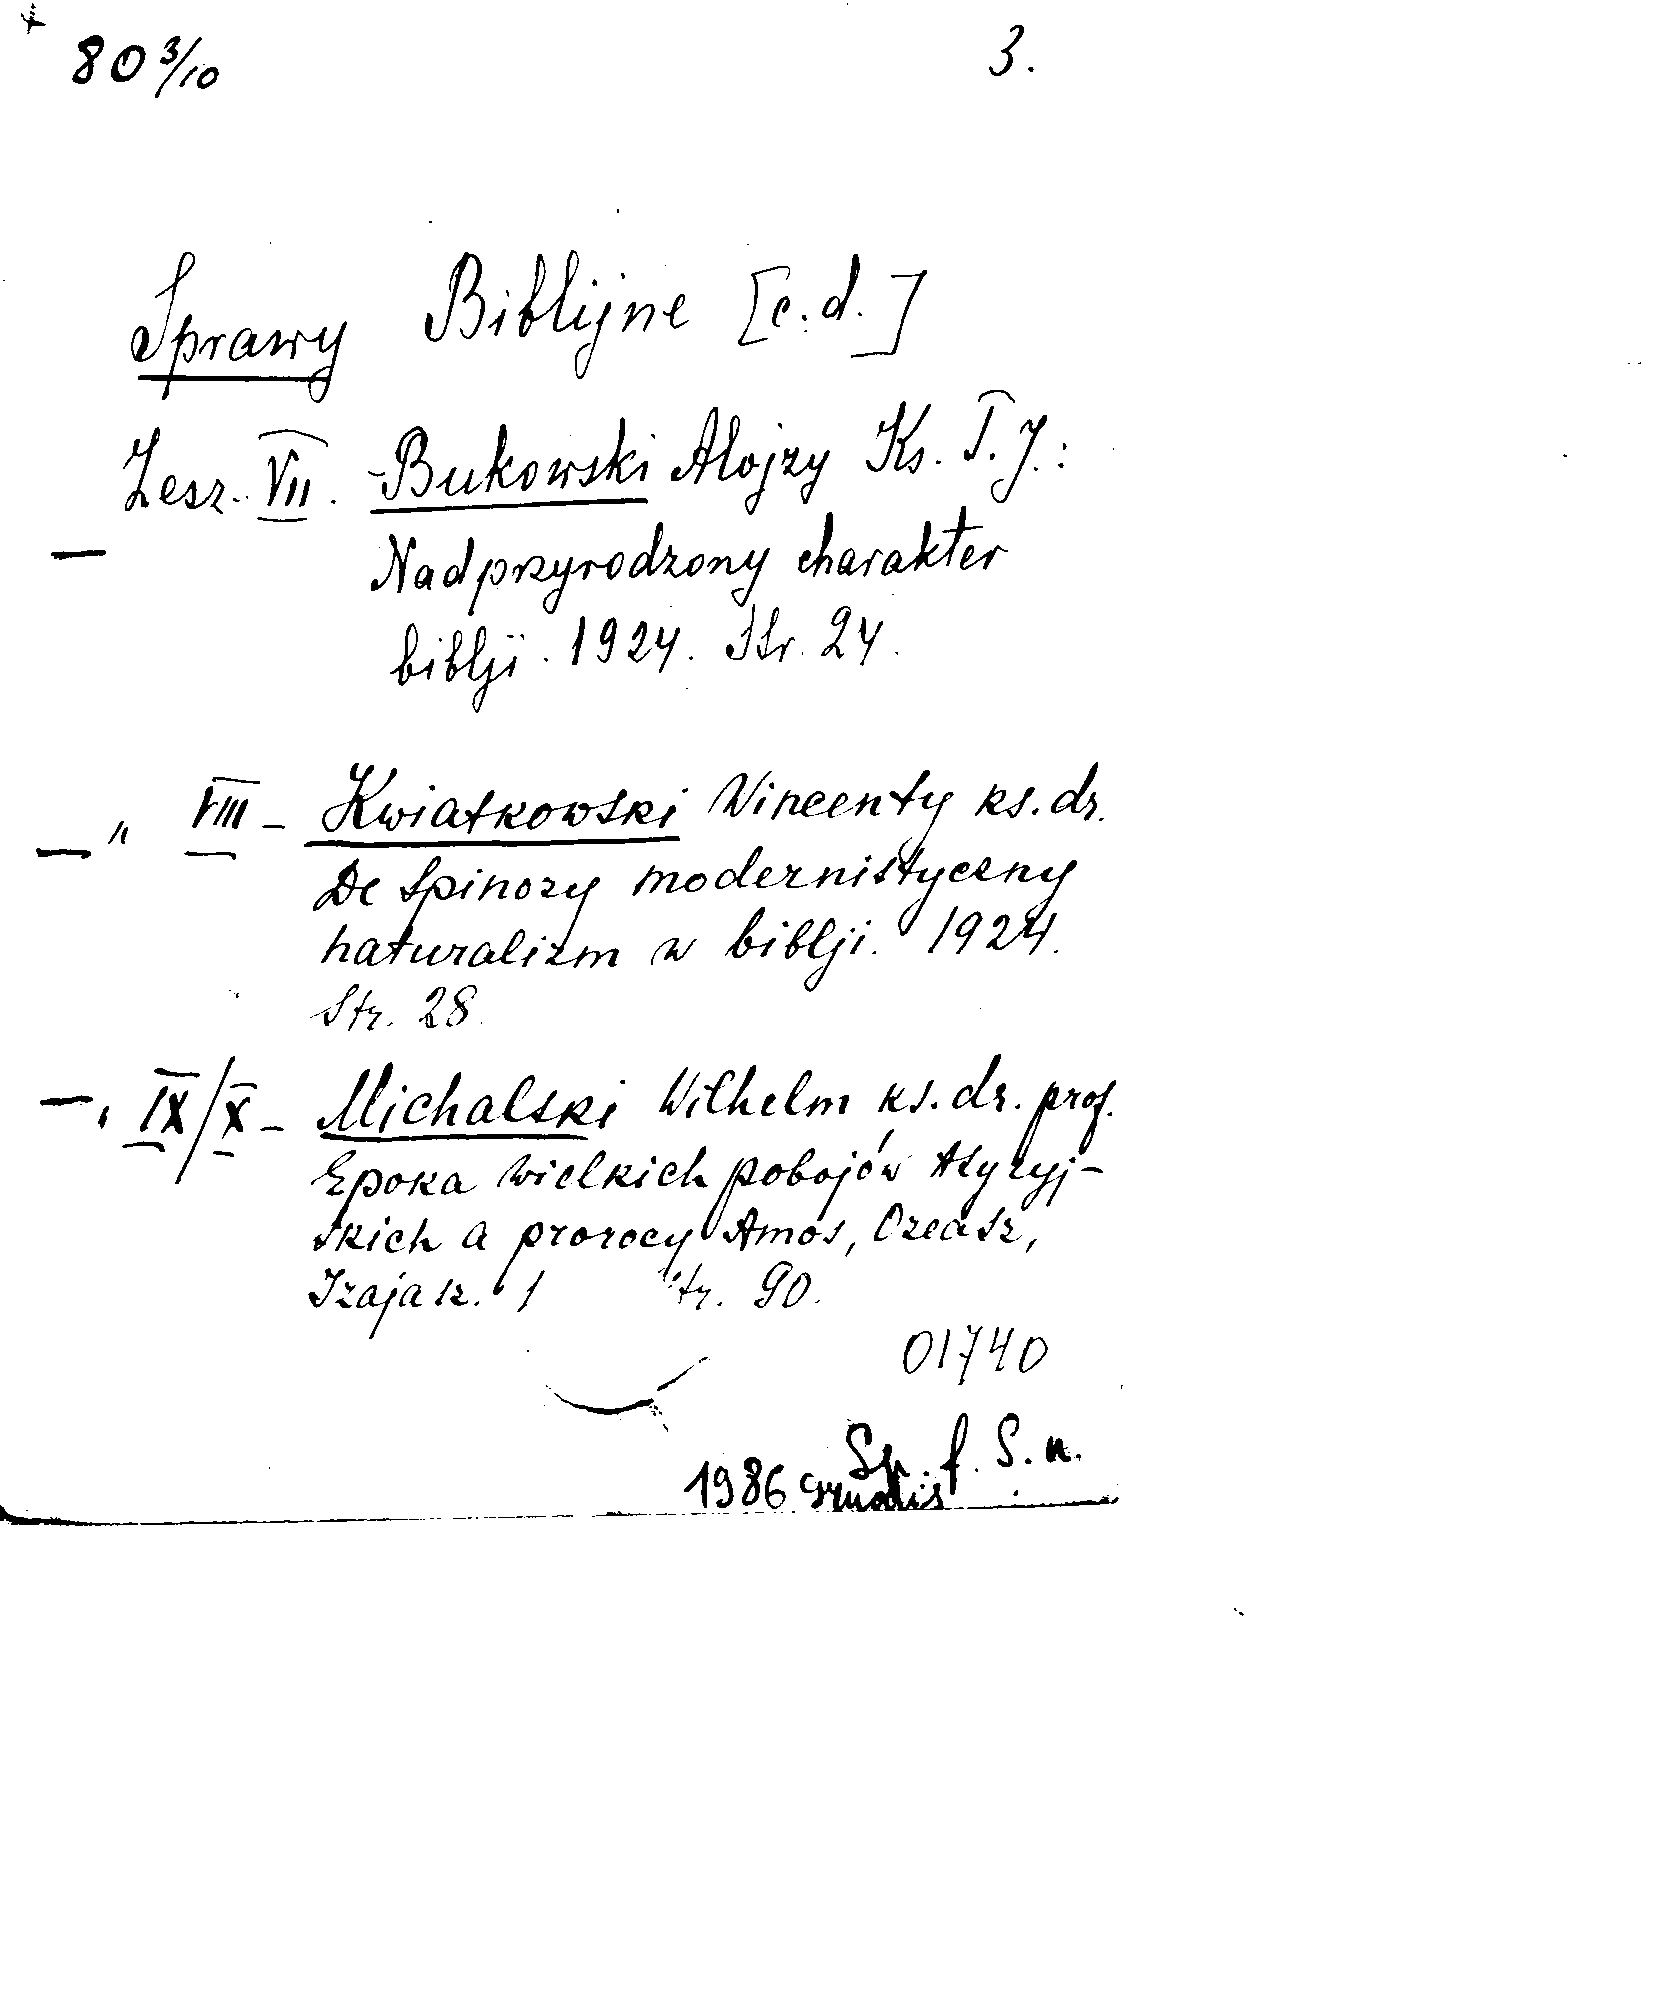 80 3/10 3.
Sprawy Biblijne [c.d.]
Zesz. VII. - Bukowski Alojzy Ks. T. J.:
Nadprzyrodzony charakter
biblji. 1924. Str. 24.
— " VIII - Kwiatkowski Wincenty ks. dr.
De Spinozy modernistyczny
naturalizm w biblji. 1924.
Str. 28.
— " IX/X - Michalski Wilhelm ks. dr. prof.
Epoka wielkich pobojów Asyryj-
skich a prorocy Amos, Ozeasz,
Izajasz. 1 Str. 90.
01740
Sp. f. S. n.
1986